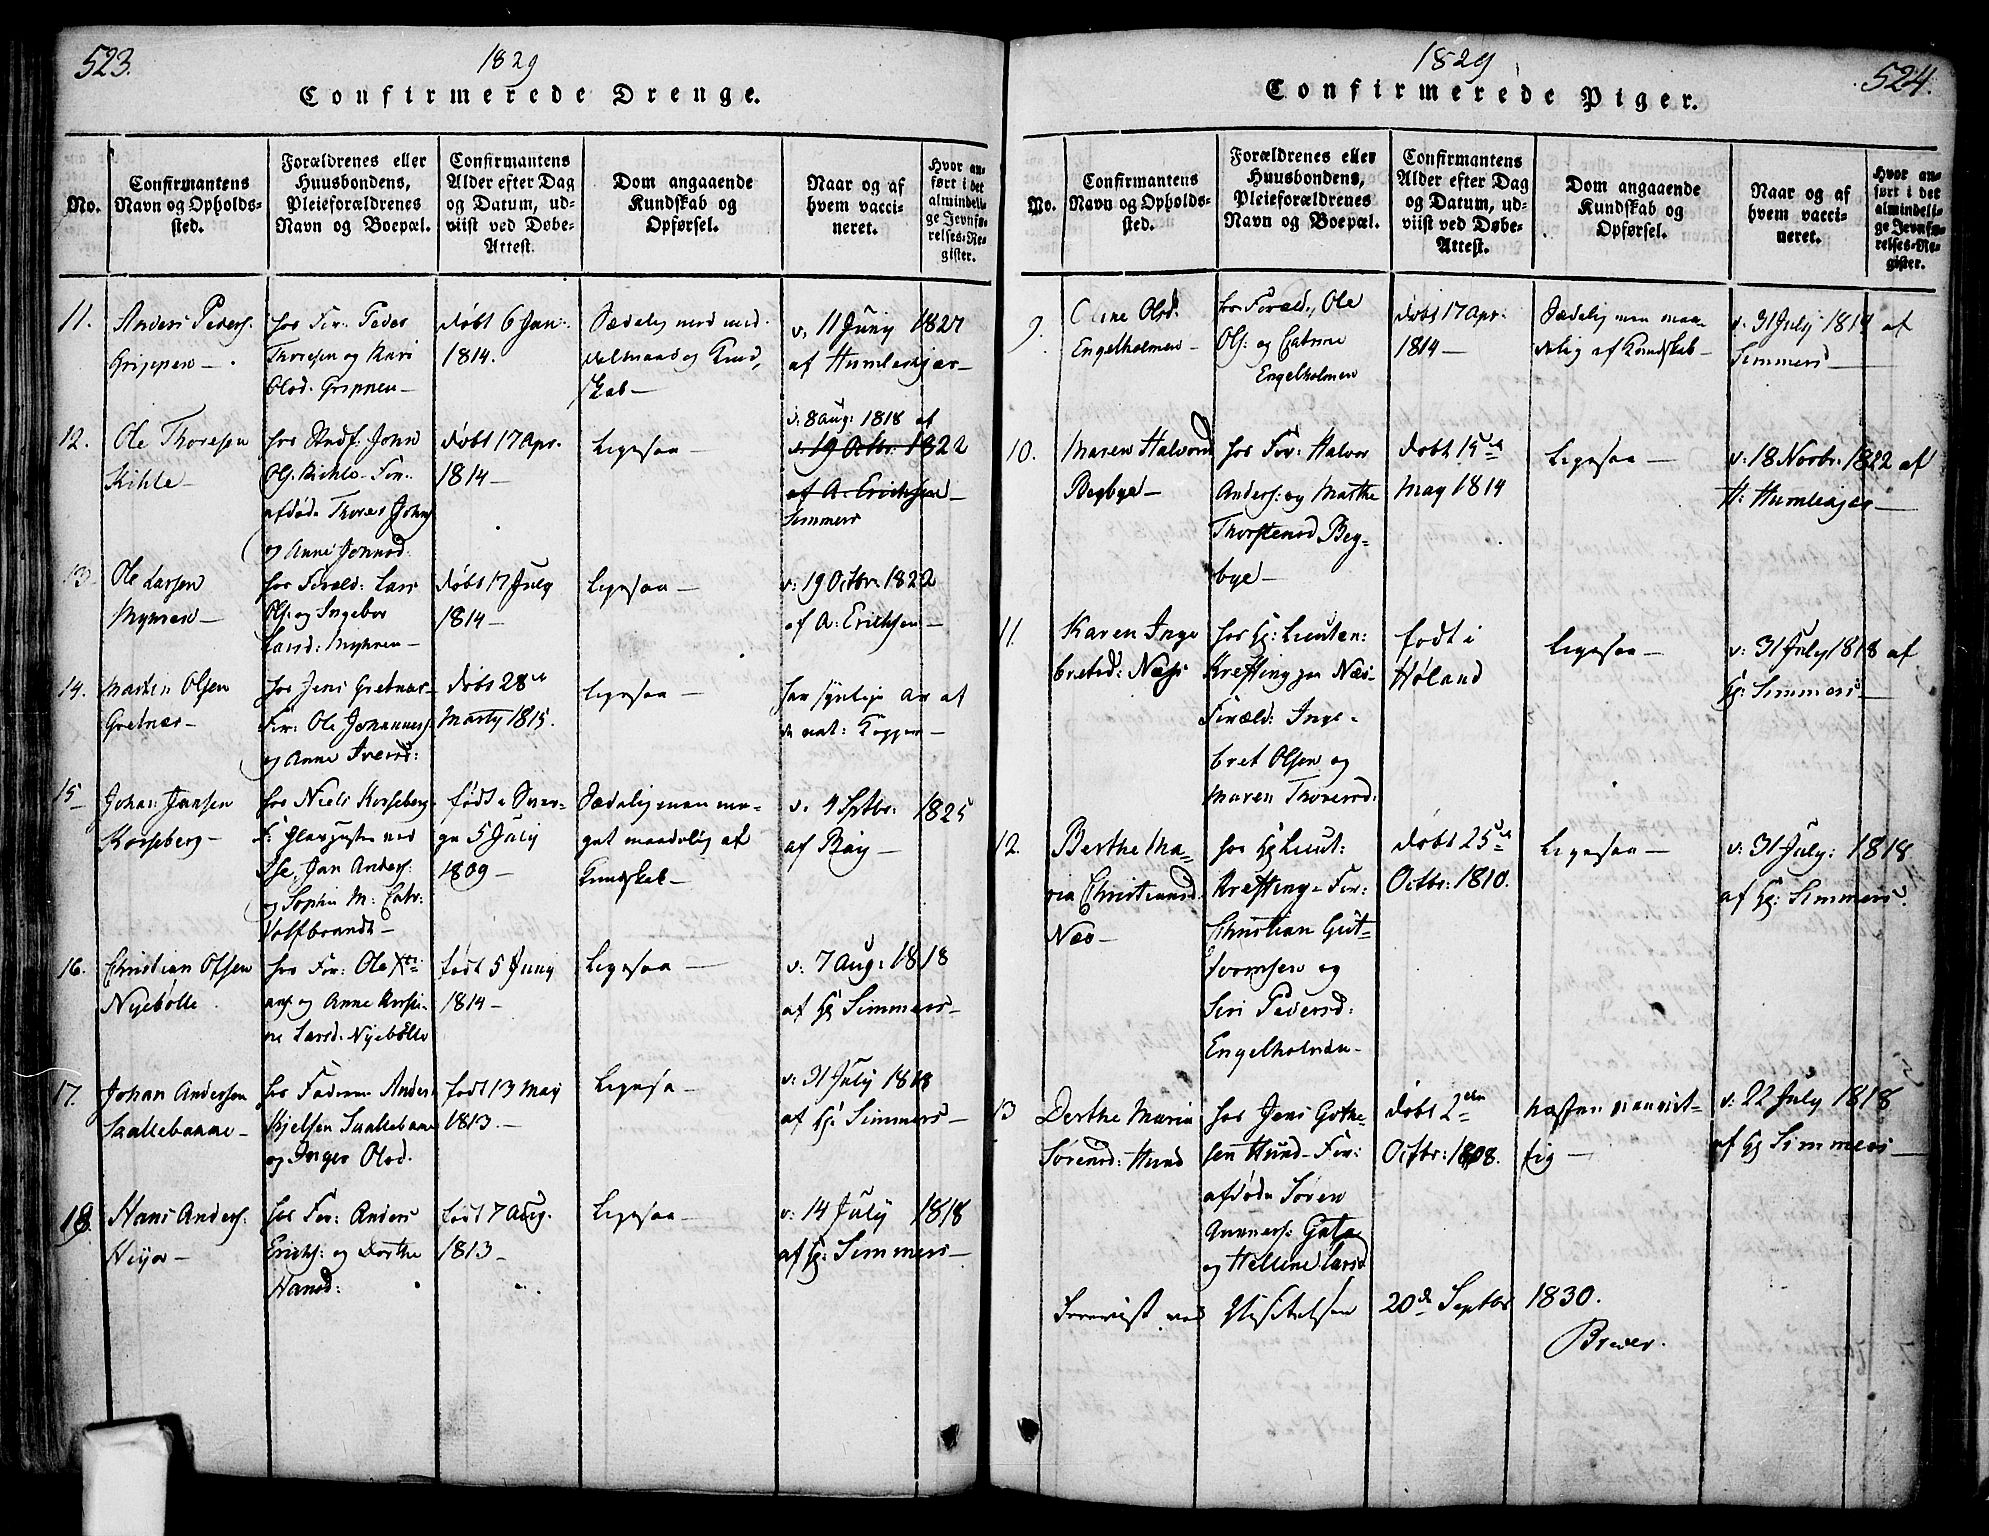 523.
1829
Confirmerede Drenge.
No.
Confirmantens
Navn og Opholds-
sted.
Forældrenes eller
Huusbondens,
Pleieforældrenes
Navn og Boepæl.
Confirmantens
Alder efter Dag
og Datum, ud-
viist ved Døbe-
Attest.
Dom angaaende
Kundskab og
Opførsel.
Naar og af
hvem vacci-
neret.
Hvor an-
ført i det
almindeli-
ge Jevnfø-
relses-Re-
gister.
11.
Anders Peders:
Grippen —
hos For: Peder
Thoresen og Kari
Olsd. Grippen —
døbt 6 Jan:
1814.
Sædelig med mid-
delmaadig Kund,
skab —
v. 11 Juny 1827
af Humlekjær —
12.
Ole Thoresen
Kihle —
John
Ols. Kihle. For:
afdøde Thores John
og Anne Jonsd:
døbt 17 Apr.
1814 —
Ligesaa —
v. 8 aug: 1818 af
v. 19 Octbr. 1822
af A. Erichsen —
Simmers
13
Ole Larsen
Myhren —
hos Foræld: Lars
Ols: og Ingebor
Larsd: Myhren —
døbt 17 July
1814 —
Ligesaa —
v: 19 Octbr. 1822
af A: Erichsen —
14.
Martin Olsen
Gretnes —
hos Jens Gretnes —
For: Ole Johannes
og Anne Iversd:
døbt 28de
Marty 1815.
Ligesaa —
har synlige Ar af
de nat: Kopper —
15
Johan Jansen
Korseberg —
hos Niels Korseberg
Jan Anders:
og Sophie M: Catr:
Volfbrandt —
født i Sver-
ge 5 July
1809 —
Sædelig men me-
get maadelig af
Kundskab —
v. 4 Sptbr: 1825
af Røy —
16.
Christian Olsen
Nyebølle.
hos For: Ole Xti-
ans: og Anne Kirsti-
ne Larsd: Nyebølle
født 5 Juny
1814 —
Ligesaa —
v: 7 Aug: 1818
af Hr Simmers —
17.
Johan Andersen
Saltebaane —
hos Faderen Anders
Kjelsen Saltebaane
og Inger Olsd.
født 13 May
1813. —
Ligesaa —
v: 31 July 1818
af Hr: Simmers —
18.
Hans Anders:
hos For: Anders
Erichs: og Dorthe
Hansd:
født 7 Aug.
1813 —
Ligesaa —
v: 14 July 1818
af Hr: Simmers —
1829
524.
Confirmerede Piger.
No.
Confirmantens
Navn og Opholds-
sted.
Forældrenes eller
Huusbondens,
Pleieforældrenes
Navn og Boepæl.
Confirmantens
Alder efter Dag
og Datum, ud-
viist ved Døbe-
Attest.
Dom angaaende
Kundskab og
Opførsel.
Naar og af
hvem vacci-
neret.
Hvor an-
ført i det
almindeli-
ge Jevnfø-
relses-Re-
gister.
9.
Olsd:
Engelholmen —
hos Foræld: Ole
Ols: og Catrine
Engelholmen
døbt 17 Apr:
1814 —
Sædelig men maa-
delig af Kundskab —
v. 31 July 1818 af
Simmers —
10.
Maren Halvorsd
Begbye —
hos For: Halvor
Anders: og Marthe
Thorstensd Beg-
bye —
døbt 15de
May 1814
Ligesaa —
v: 18 Novbr: 1822 af
H: Humlekjær —
11.
Karen Inge
bretsd: Næss
hos Hr: Lieuten:
Krefting paa Næs —
Foræld: Inge-
bret Olsen og
Maren Thoresd:
født i
Høland
Ligesaa —
v: 31 July 1818 af
Hr: Simmers —
12.
Berthe Ma-
ria Christiansd
Næs —
hos Hr Lieut:
Krefting — For:
Christian Gut-
tormsen og
Siri Pedersd:
Engelholmen —
døbt 25de
Octbr: 1810.
Ligesaa —
v: 31 July: 1818
af Hr: Simmers.
13
Dorthe Maria
Sørensd: Hund
hos Jens Gothe-
sen Hund — For:
afdøde Søren
Gunners: Gata
og Hellene Larsd
døbt 2den
Octbr: 1808.
næsten vanvit-
tig —
v: 22 July 1818
af Hr Simmers —
Foreviist ved Visitatsen 20de Septbr 1830.
Breder.